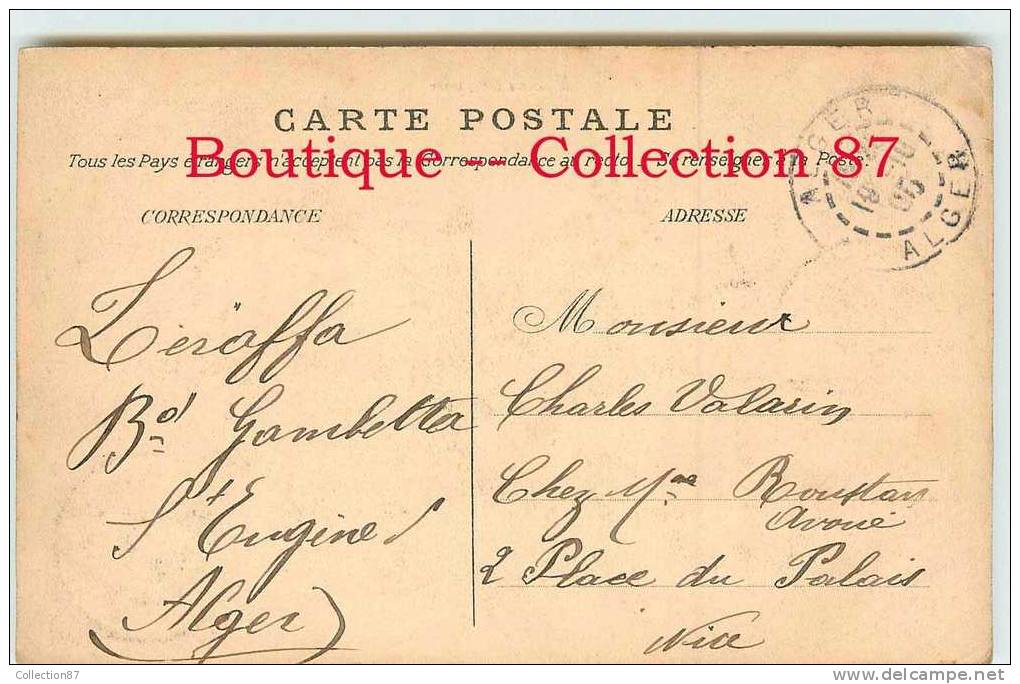 CARTE POSTALE
Boutique -- Collection 87
Tous les Pays étrangers n'acceptent pas la Correspondance au recto. Se renseigner à la Poste.
ALGER
ALGER
05
CORRESPONDANCE
ADRESSE
Zeraffa
Bd Gambetta
St Eugène
Alger)
Monsieur
Charles Valarin
Chez Me Roustan
Avoué
2 Place du Palais
Nice
Collection87
www.delcampe.net